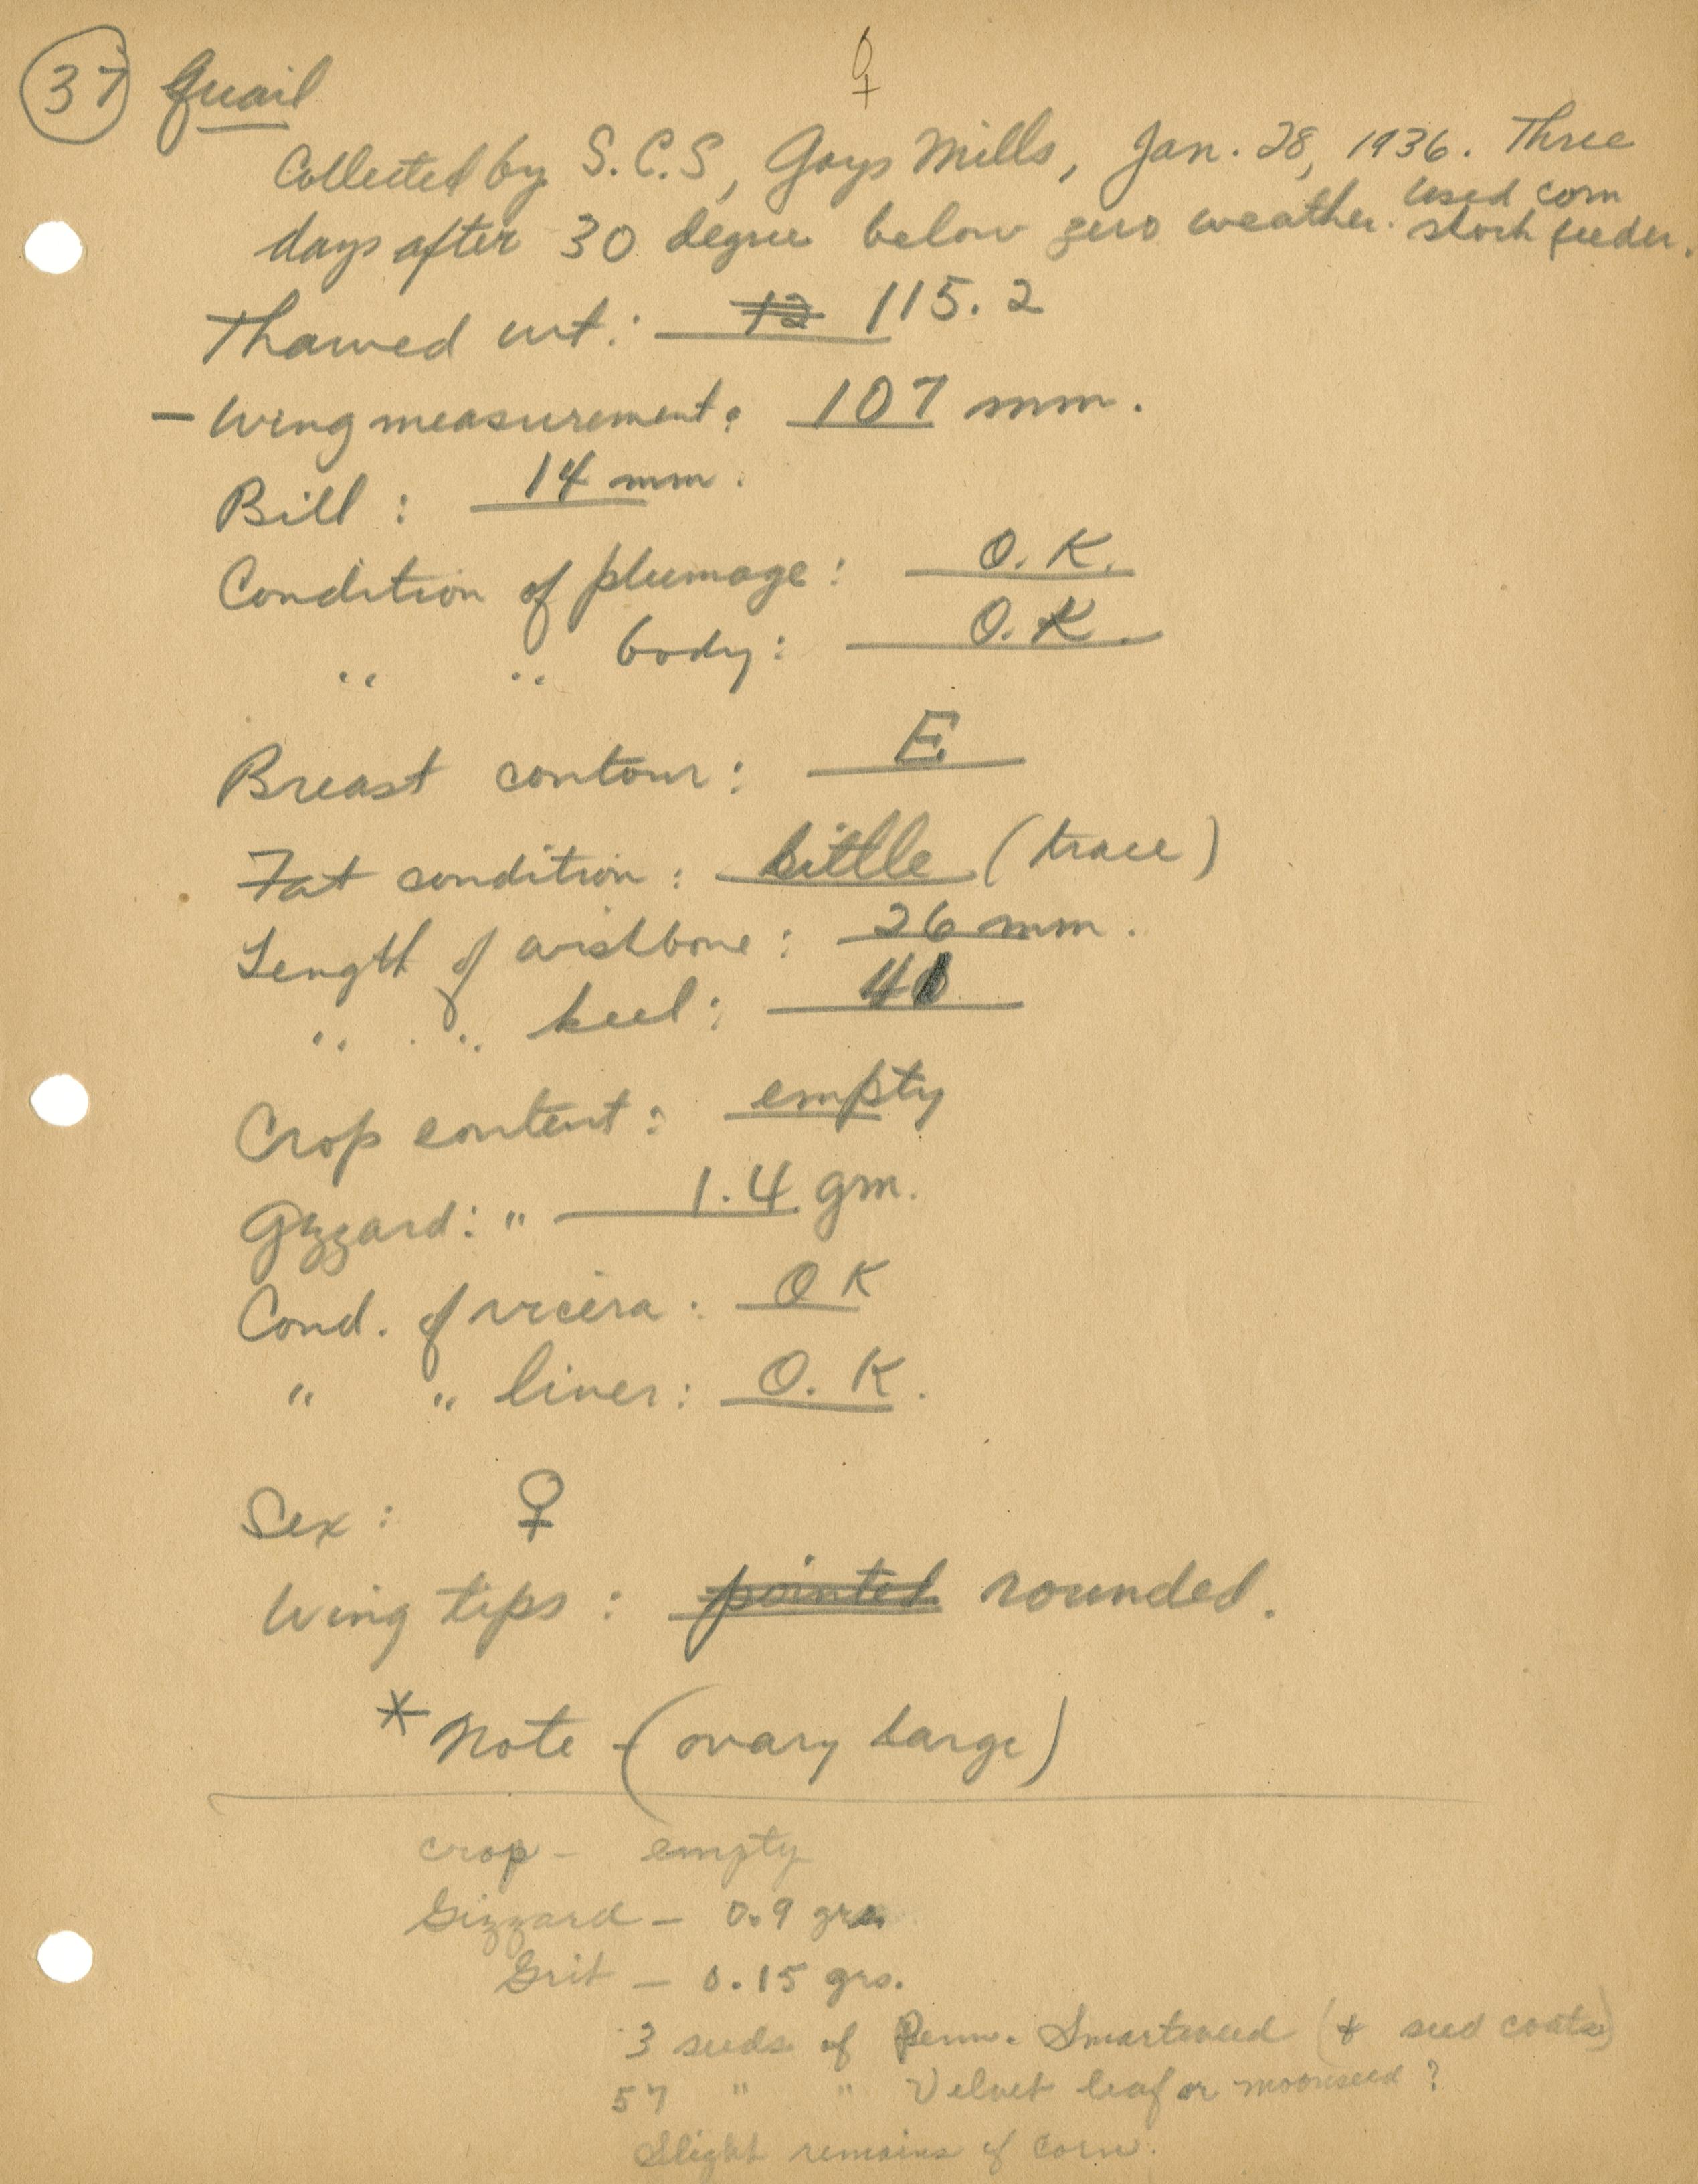 ♀
37 Quail
Collected by S.C.S, Gays Mills, Jan. 28, 1936. Three
days after 30 degree below zero weather. Used corn
shock feeder.
Thawed wt: 12 115.2
— Wing measurement: 107 mm.
Bill: 14 mm.
Condition of plumage: O.K.
" " body: O.K.
Breast contour: E
Fat condition: little (trace)
Length of wishbone: 26 mm.
" " keel: 41
Crop content: empty
Gizzard: " 1.4 gm.
Cond. of vicera: OK
" " liver: O.K.
Sex: ♀
Wing tips: pointed rounded.
* Note - (ovary large)
crop - empty
Gizzard - 0.9 grs
Grit - 0.15 grs.
3 seeds of Penn. Smartweed (+ seed coats)
57 " " Velvet leaf or moonseed?
Slight remains of corn.